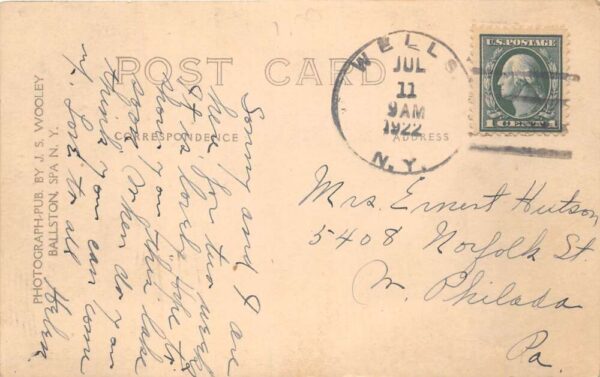 POST CARD
CORRESPONDENCE
ADDRESS
PHOTOGRAPH-PUB. BY J. S. WOOLEY
BALLSTON, SPA N. Y.
WELLS
JUL
11
9AM
1922
N.Y.
U.S. POSTAGE
1 CENT 1
Sonny and I are
here for two weeks
It is lovely. Hope to
show you this lake
soon. When do you
think you can come
up. Love to all
Helen.
Mrs. Ernest Hutson
5408 Norfolk St
W. Philada
Pa.